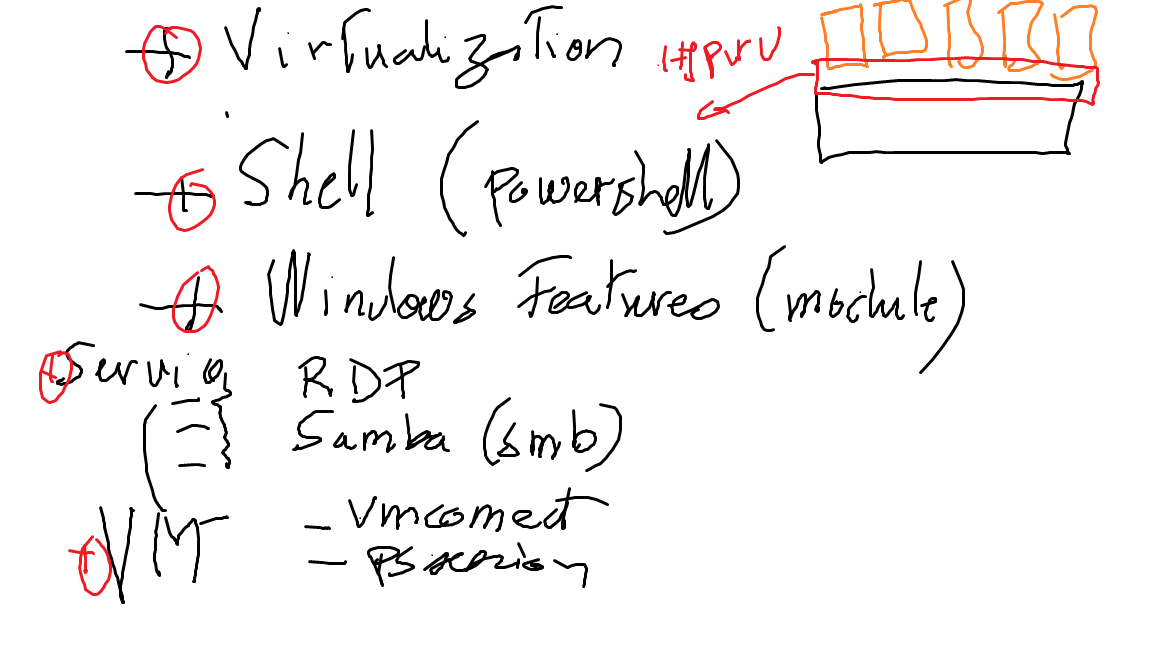 + Virtualization
+ Shell (powershell)
+ Windows Features (module)
+ Servicio, RDP
Samba (smb)
+ VM - Vmconnect
- PSsession